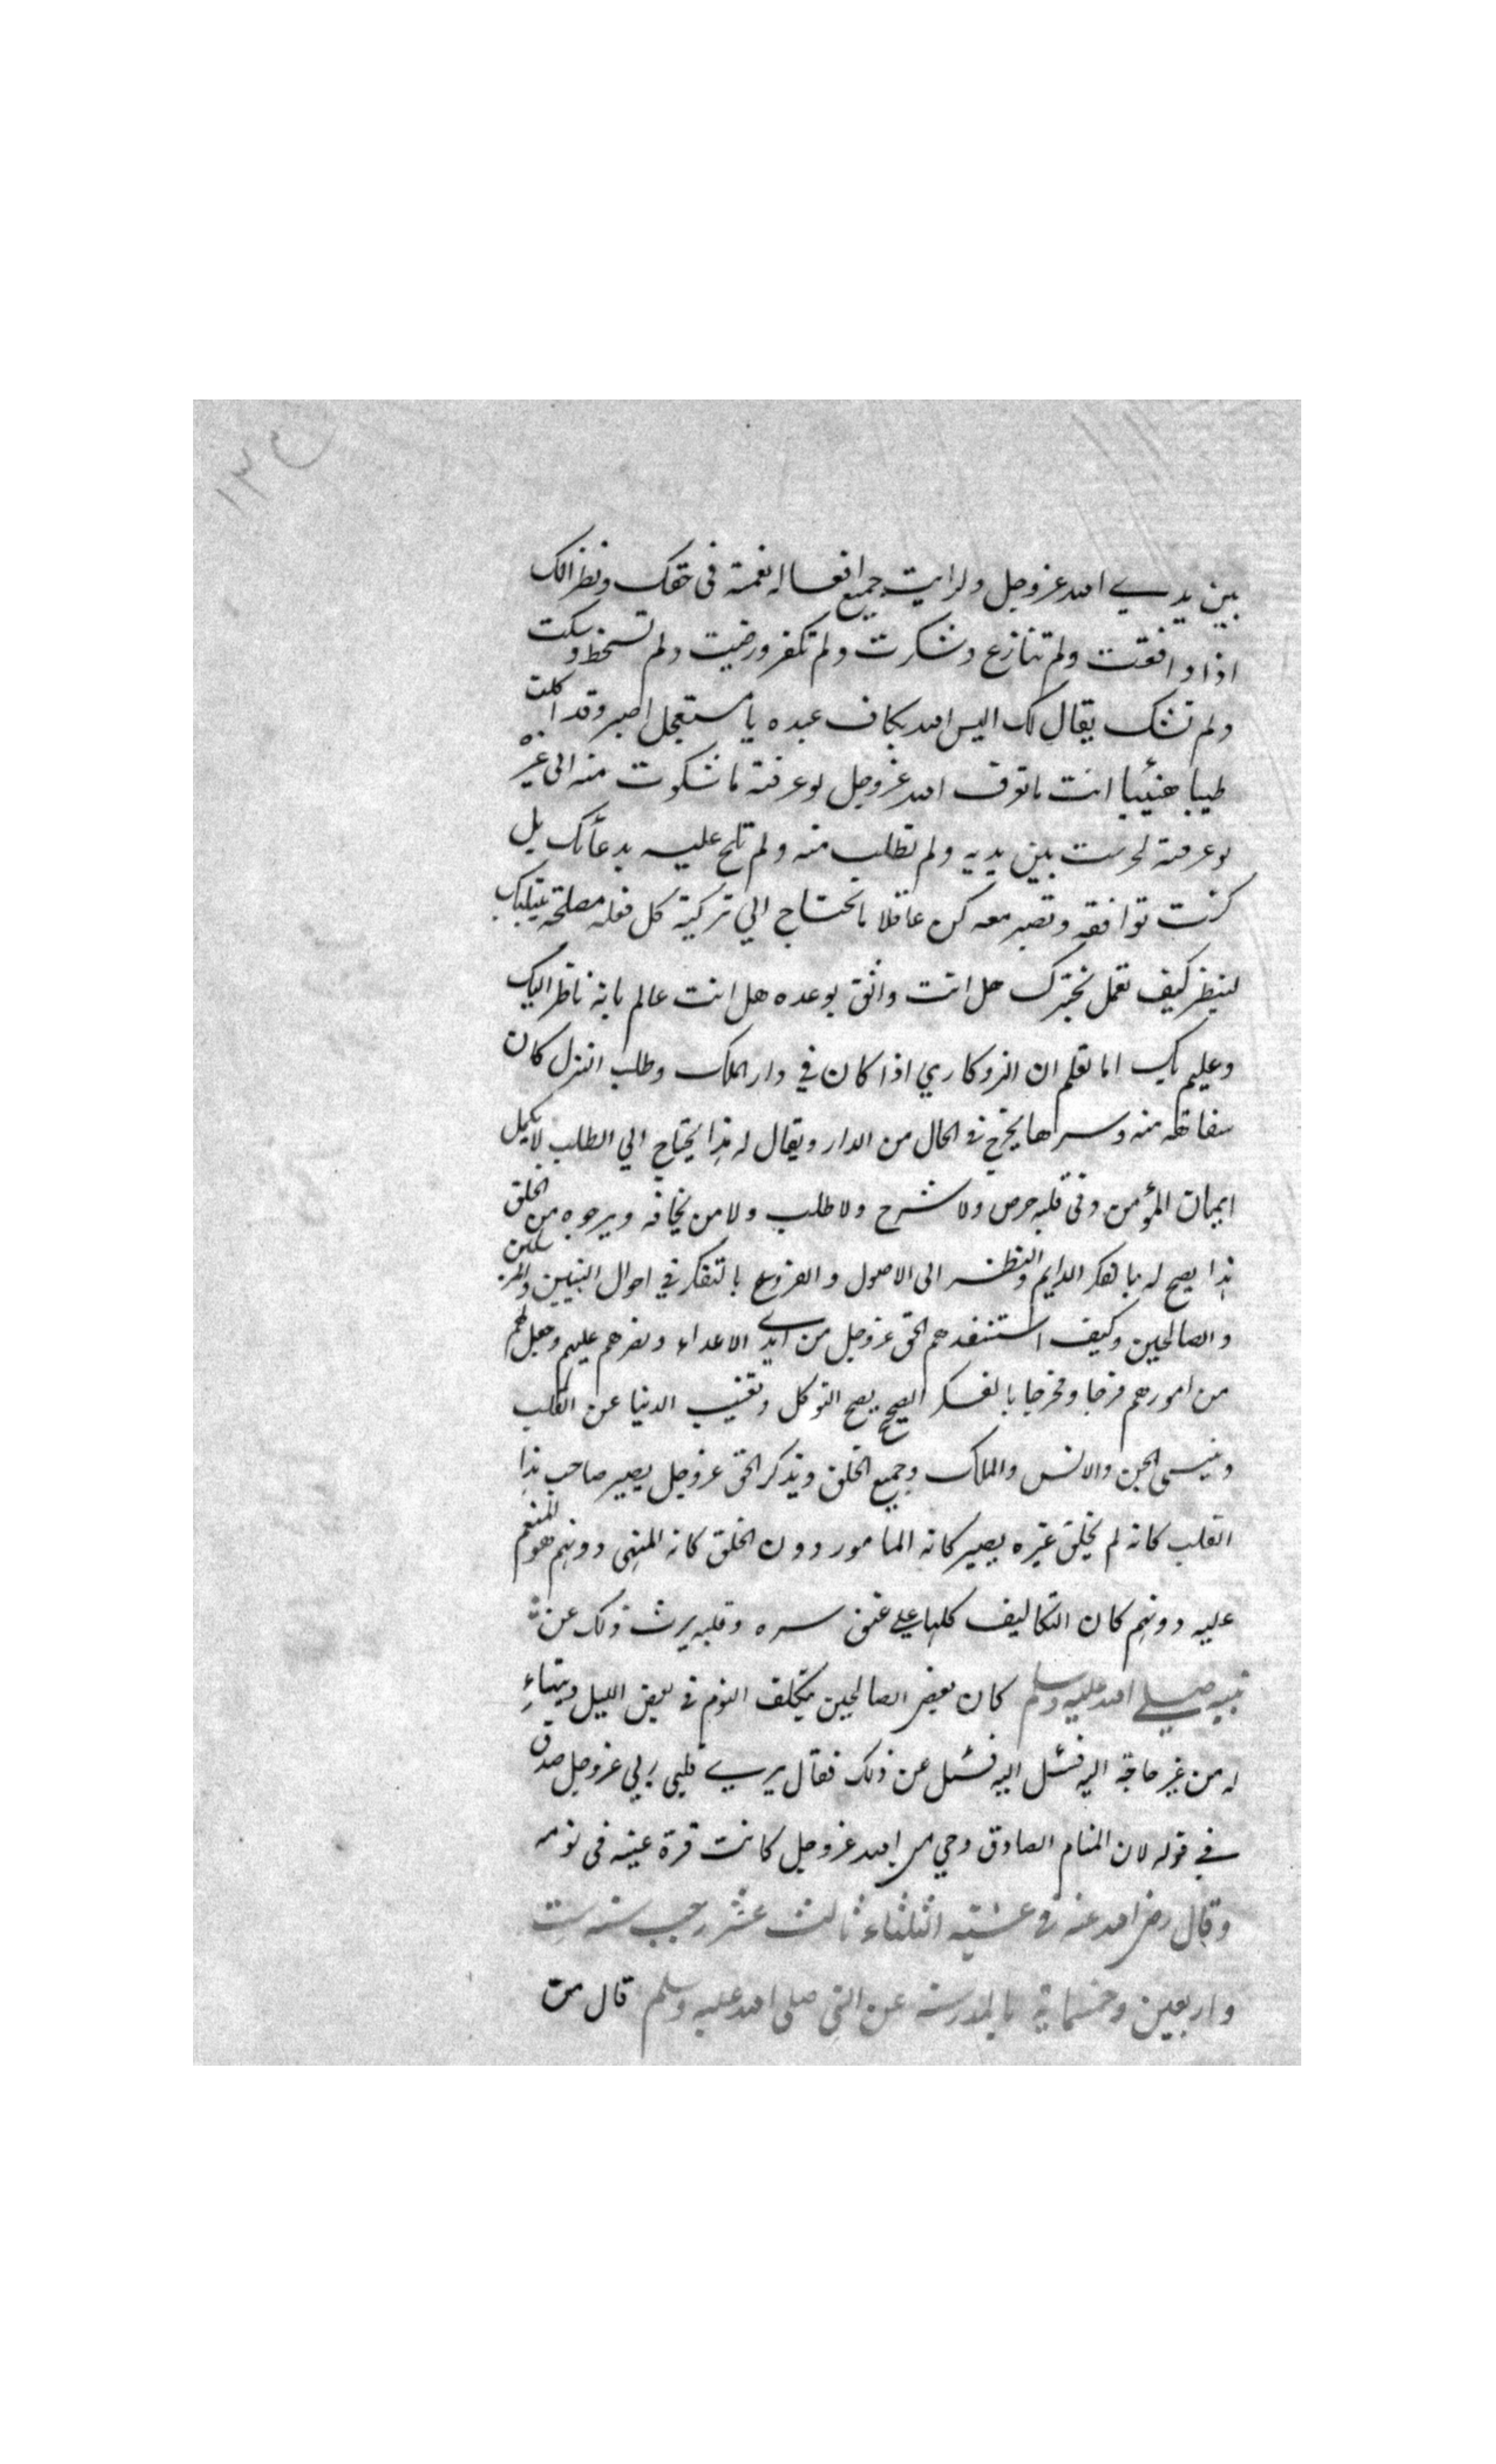 ١٣
بين يدي الله عزوجل ولرايت جميع افعاله نعمة فى حقك ونظرالك
اذا وافقت ولم تنازع وشكرت ولم تكفر ورضيت ولم تسخط وسكت
ولم تشك يقال لك اليس الله بكاف عبده يا مستعجل اصبر وقد اكلت
طيبا هنيئا انت ما تعرف الله عزوجل لو عرفته ما شكوت منه الى غيره
لو عرفته لخرست بين يديه ولم تطلب منه ولم تلح عليه بدعائك بل
كنت توافقه وتصبر معه كن عاقلا ما تحتاج الي تزكية كل فعله مصلحة يبتليك
لينظر كيف تعمل يختبرك هل انت واثق بوعده هل انت عالم بانه ناظر اليك
وعليم بك اما تعلم ان الروكاري اذا كان في دار الملك وطلب انزل كان
منه وسرها يخرج في الحال من الدار ويقال له هذا يحتاج الي الطلب لا يكمل
ايمان المؤمن وفى قلبه حرص ولا شرح ولا طلب ولا من يخافه ويرجوه من الخلق
هذا يصح له بالفكر الدايم والنظر الى الاصول والفروع بالتفكر في احوال النبيين والمرسلين
والصالحين وكيف استنقذهم الحق عزوجل من ايدي الاعداء ونصرهم عليهم وجعل لهم
من امورهم فرجا ومخرجا بالفكر الصحيح يصح التوكل وتغيب الدنيا عن القلب
وينسى الجن والانس والملك وجميع الخلق ويذكر الحق عزوجل يصير صاحب هذا
القلب كانه لم يخلق غيره يصير كانه المامور دون الخلق كانه المنهى دونهم هو المنعم
عليه دونهم كان التكاليف كلها على عنق سره وقلبه يرث ذلك عن
نبيه صلى الله عليه وسلم كان بعض الصالحين يتكلف النوم في بعض الليل ويتهاء
له من غير حاجة اليه فسئل اليه فسئل عن ذلك فقال يري قلبى ربي عزوجل صدق
في قوله لان المنام الصادق وحي من الله عزوجل كانت قرة عينه فى نومه
وقال رضى الله عنه في عشية الثلثاء ثالث عشر رجب سنه ست
واربعين وخمسماية بالمدرسة عن النبى صلى الله عليه وسلم قال من